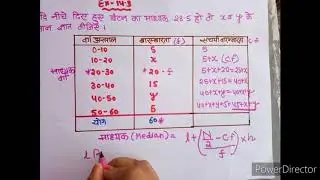 Ex-14.3
यदि नीचे दिए हुए बंटन का माध्यक 28.5 हो तो x और y के
मान ज्ञात कीजिए।
वर्ग अंतराल बारम्बारता (f) संचयी बारम्बारता C.F
0-10 5 5
10-20 x 5+x (C.F)
*20-30 *20-f 5+x+20=25+x
30-40 15 25+x+15=40+x
40-50 y 40+x+y=40+x+y
50-60 5 40+x+y+5=45+x+y
योग 60
माध्यक (Median) = l + (N/2 - Cf / f) × h
PowerDirector